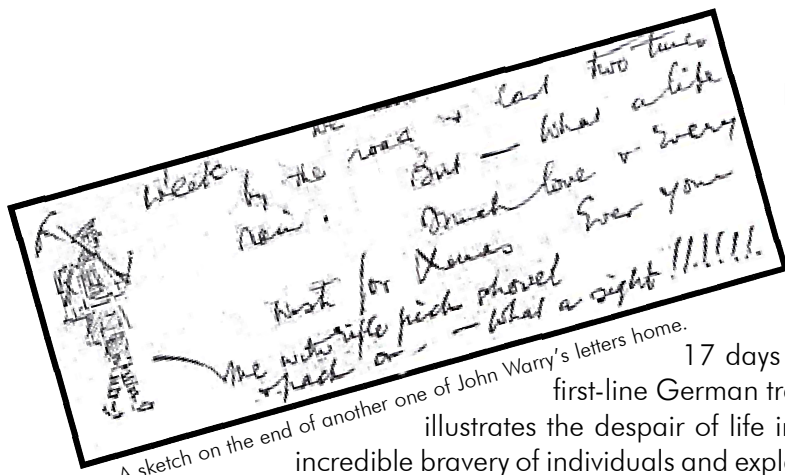 week. we
by the road & last two times
rain. But — what a life
Much love & every
wish for Xmas Ever your
Me with rifle pick shovel
& pack on — What a sight !!!!!!!
A sketch on the end of another one of John Warry's letters home.
17 days
first-line German tre
illustrates the despair of life in
incredible bravery of individuals and explo